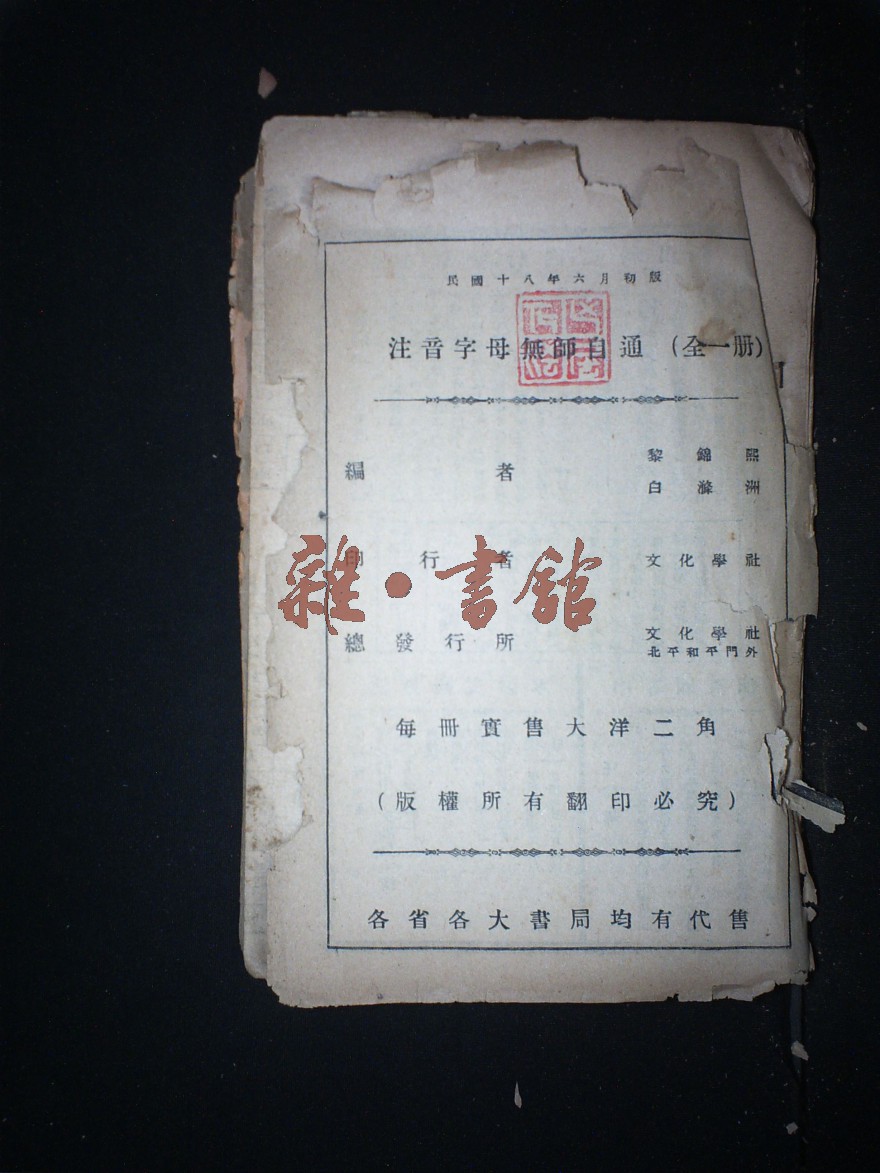 民國十八年六月初版
注音字母無師自通（全一册）
編者 黎錦熙
白滌洲
印行者 文化學社
雜·書館
總發行所 文化學社
北平和平門外
每冊實售大洋二角
（版權所有翻印必究）
各省各大書局均有代售